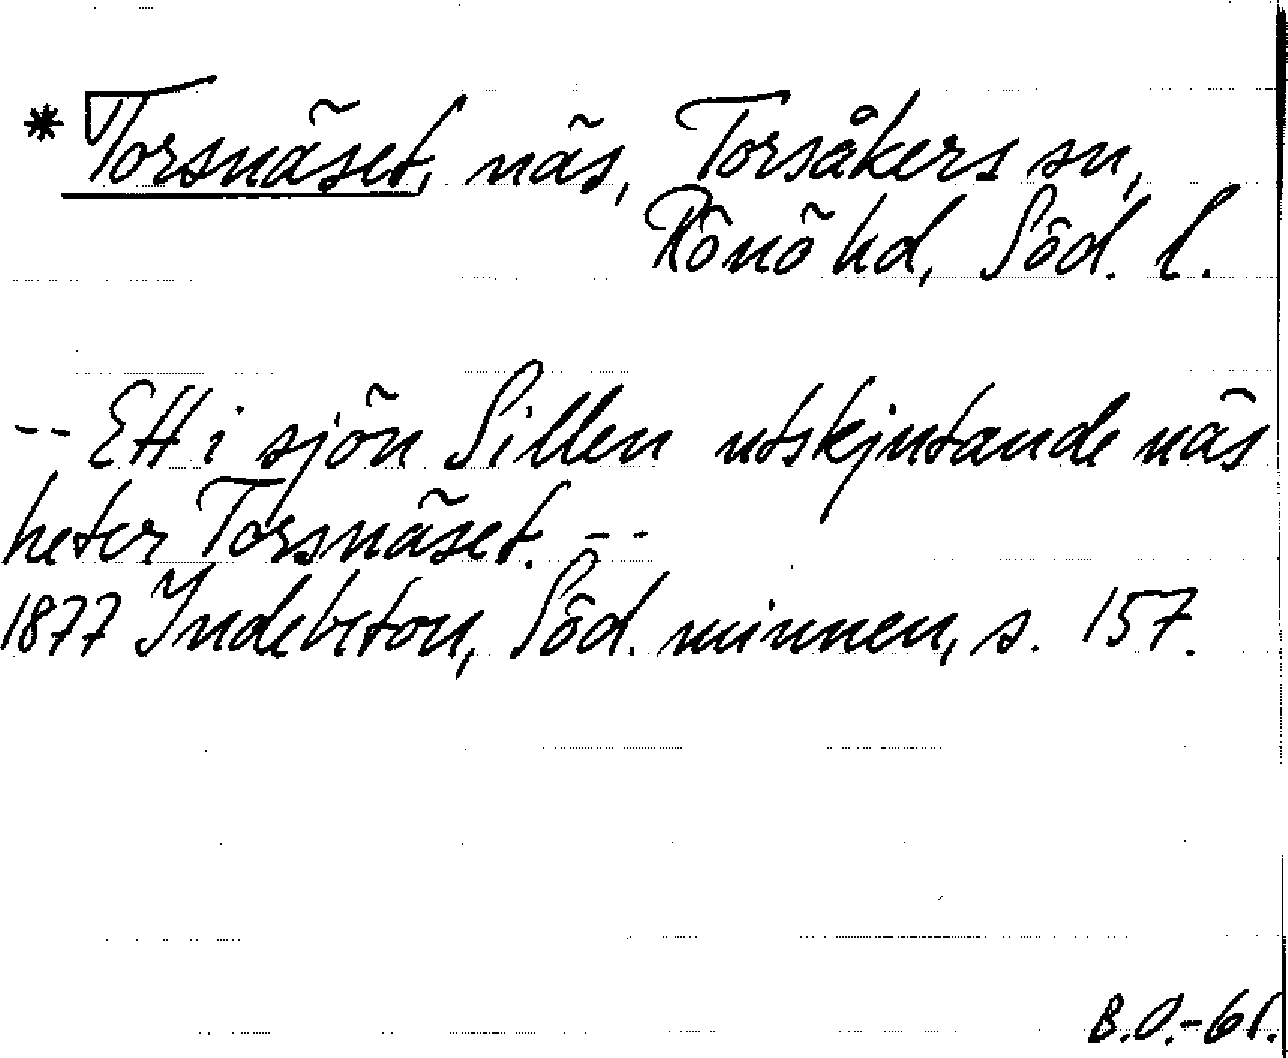 * Torsnäset, näs, Torsåkers sn,
Rönö hd, Söd. l.
-- Ett i sjön Sillen utskjutande näs
heter Torsnäset. --
1877 Indebetou, Söd. minnen, s. 157.
B.O.-61.